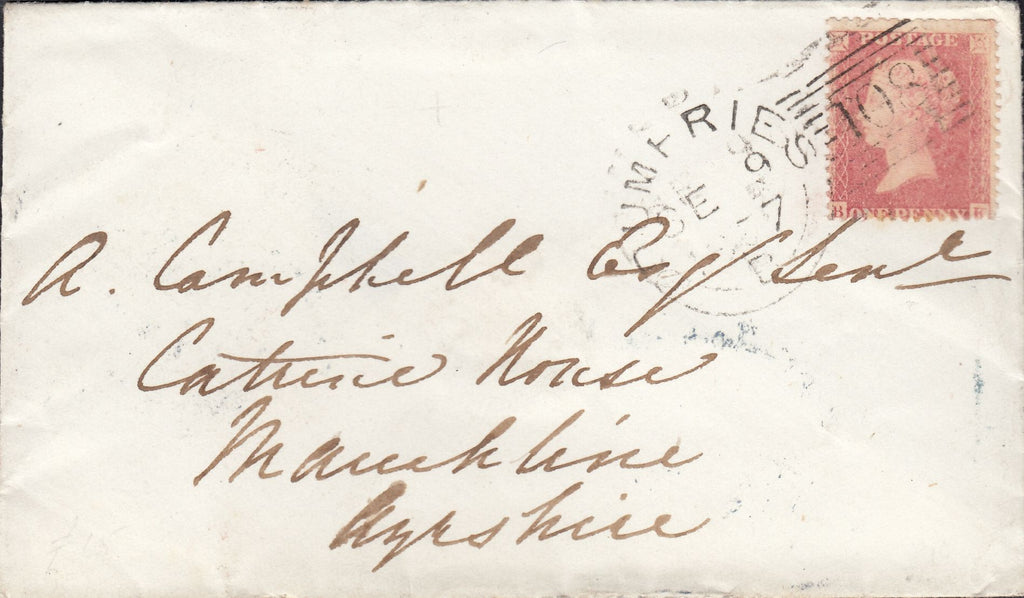 POSTAGE
108
ONE PENNY
DUMFRIES
DE
7
A. Campbell Esq Senr
Catrine House
Mauchline
Ayrshire